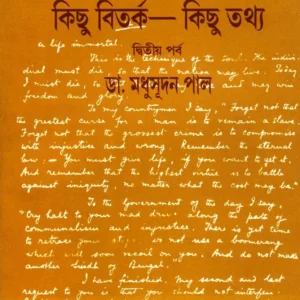 কিছু বিতর্ক— কিছু তথ্য
a life immortal.
দ্বিতীয় পর্ব
This is the technique of the soul. The indi-
vidual must die, so that the nation may live. Today
I must die, so                may win
freedom and glory.
ডাঃ মধুসূদন পাল
To my countrymen I say, "Forget not that
the greatest curse for a man is to remain a slave.
Forget not that the grossest crime is to compromise
with injustice and wrong. Remember the eternal
law – You must give life, if you want to get it.
And remember that the highest virtue is to battle
against iniquity, no matter what the cost may be."
To the Government of the day I say,
"Cry halt to your mad drive along the path of
communalism and injustice. There is yet time
to retrace your steps. Do not use a boomerang
which will soon recoil on you. And do not make
another 'Sindh of Bengal'."
I have finished. My second and last
request to you is that you should not interfere